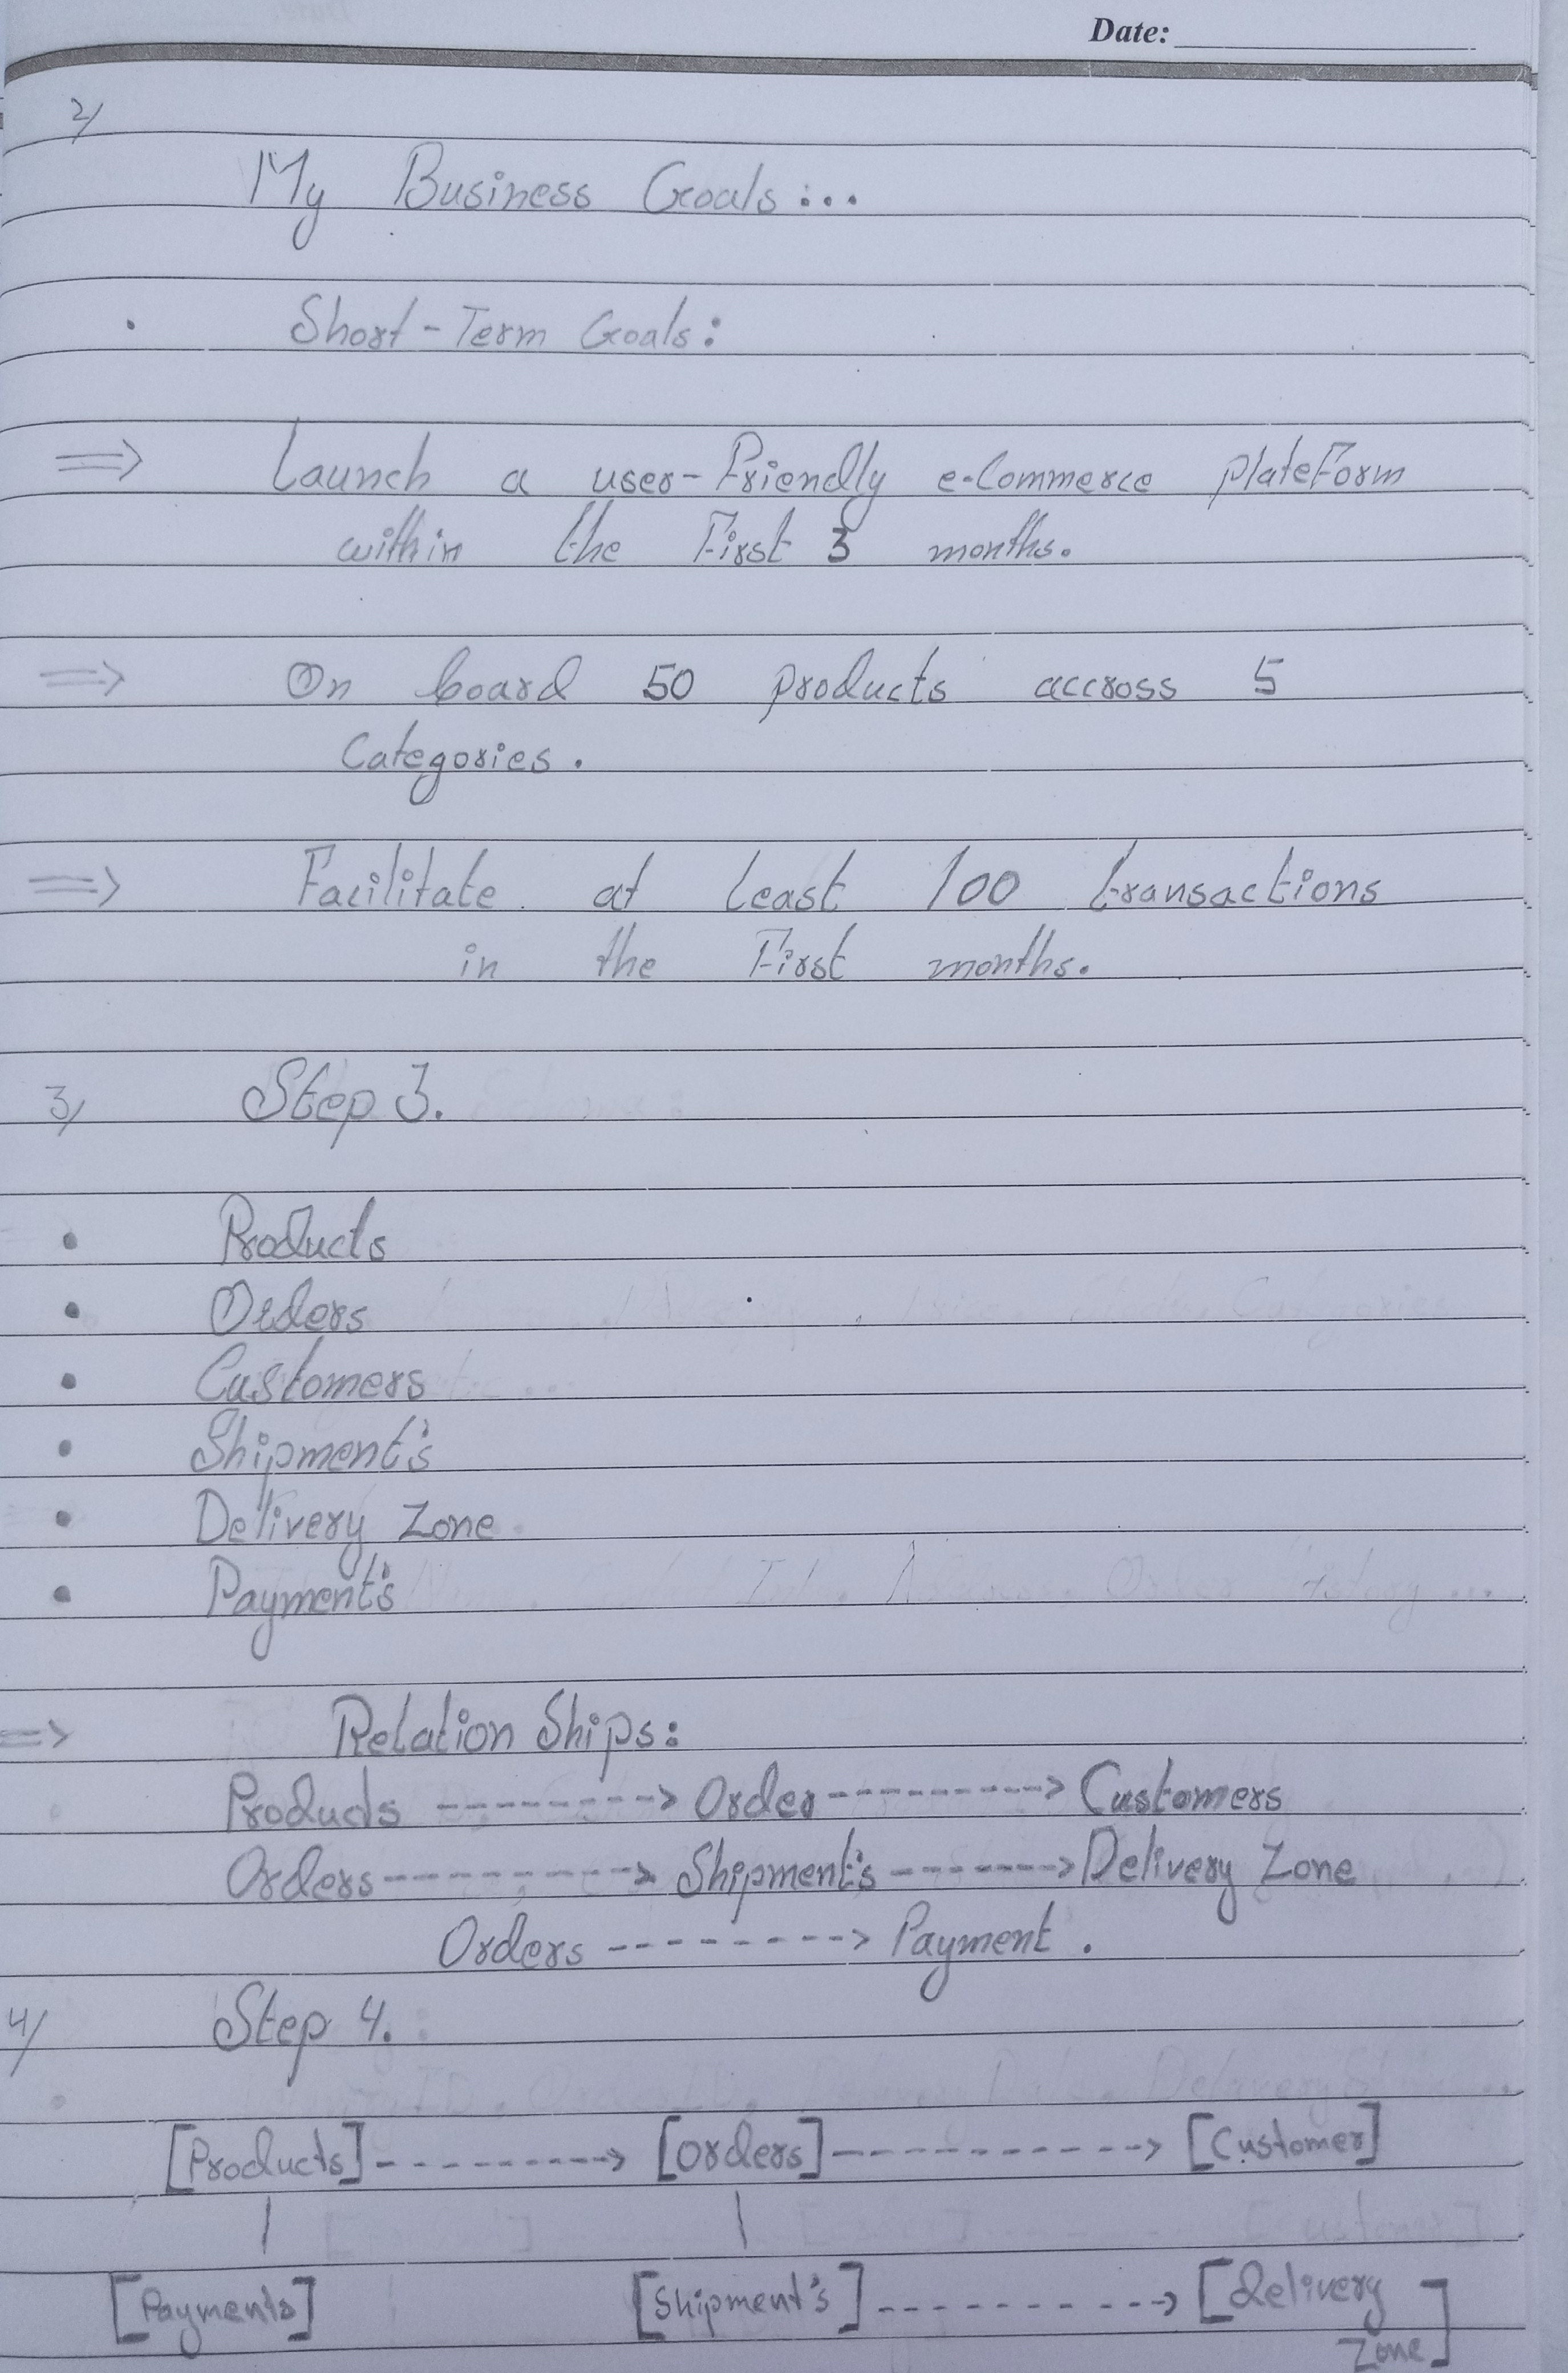 Date:
2/
My Business Goals:...
• Short-Term Goals:
⇒ Launch a user-Friendly e-Commerce plateForm
within the First 3 months.
⇒ On board 50 products accross 5
Categories.
⇒ Facilitate at least 100 transactions
in the First months.
3/ Step 3.
• Products
• Orders
• Customers
• Shipment's
• Delivery Zone
• Payment's
=> Relation Ships:
Products ---------> Order ----------> Customers
Orders ----------> Shipment's -------> Delivery Zone
Orders --------> Payment.
4/ Step 4.
[Products] ----------> [Orders] -----------> [Customer]
| |
[Payments] [Shipment's] ----------> [delivery
Zone]